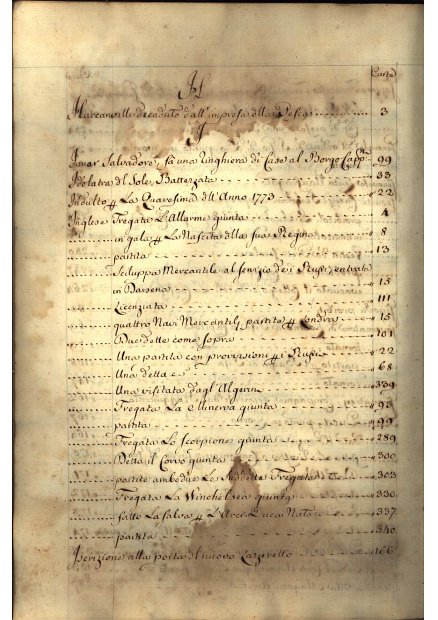 Carte
H
Harcanville decaduto dall'impresa della Pesca 3
I
Imar Salvadore, fà una linghiera di Case al Borgo Capp.ni 99
Idolatra del Sole, Battezzata 33
Indulto p La Quaresima dell'Anno 1773 22
Inglese Fregata L'Allarme giunta 4
in gala p La Nascita della sua Regina 8
partita 13
Scaluppa Mercantile al servizio de i Russi, entrata
in Darsena 15
Licenziata 111
quattro Navi Mercantili partite p Londra 15
Due dette come sopra 101
Una partita con provvisioni p i Russi 22
Una detta 68
Una visitata dagl'Algerini 339
Fregata La Minerva giunta 93
partita 99
Fregata Lo Scorpione giunta 289
Detta il Corvo giunta 300
partite ambedue Le suddette Fregate 303
Fregata La Winchelsea giunta 330
fatto La Salva p 337
partita 340
Iscrizione alla porta del nuovo Lazzeretto 166